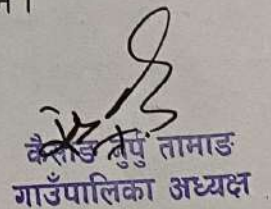 कैसाङ नुर्पु तामाङ
गाउँपालिका अध्यक्ष